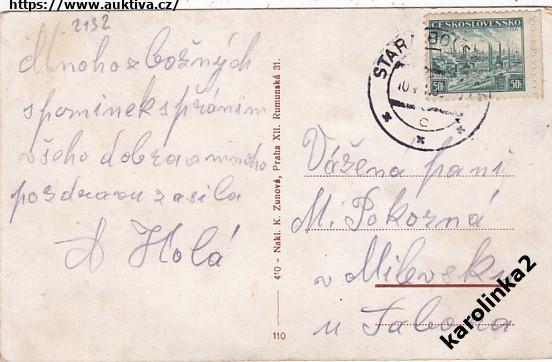 https://www.auktiva.cz/
2132
Mnoho zbožných
spomínek s přáním
všeho dobra a mnoho
pozdravu zasílá
A Holá
4°0 - Nakl. K. Zunová, Praha XII. Rumunská 31.
110
ČESKOSLOVENSKO
50h 50h
STARÁ BOL
10.V
C
Vážená paní
M. Pokorná
v Milevsku
u Tabora
karolinka2